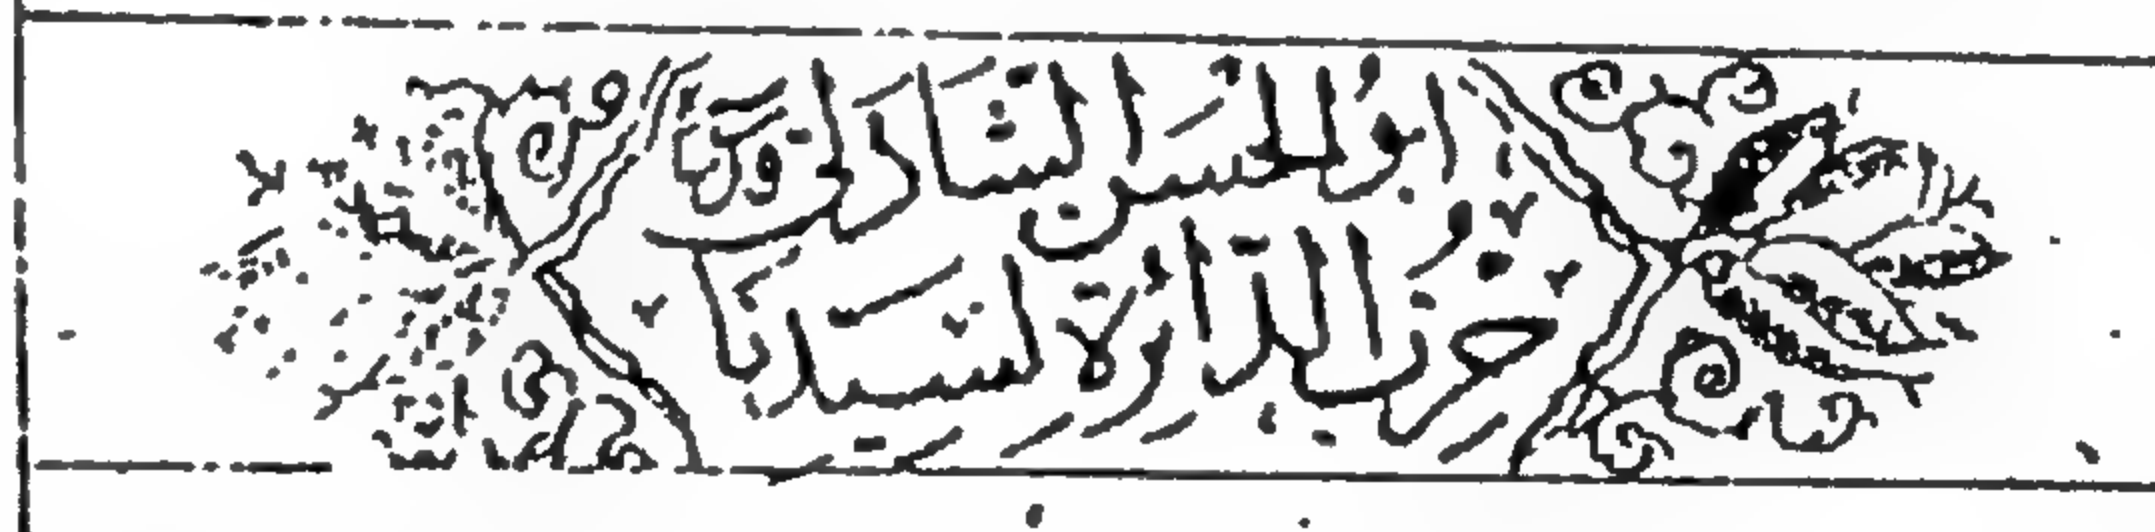 حزب الدائرة لسيدنا
ابو الحسن الشاذلي